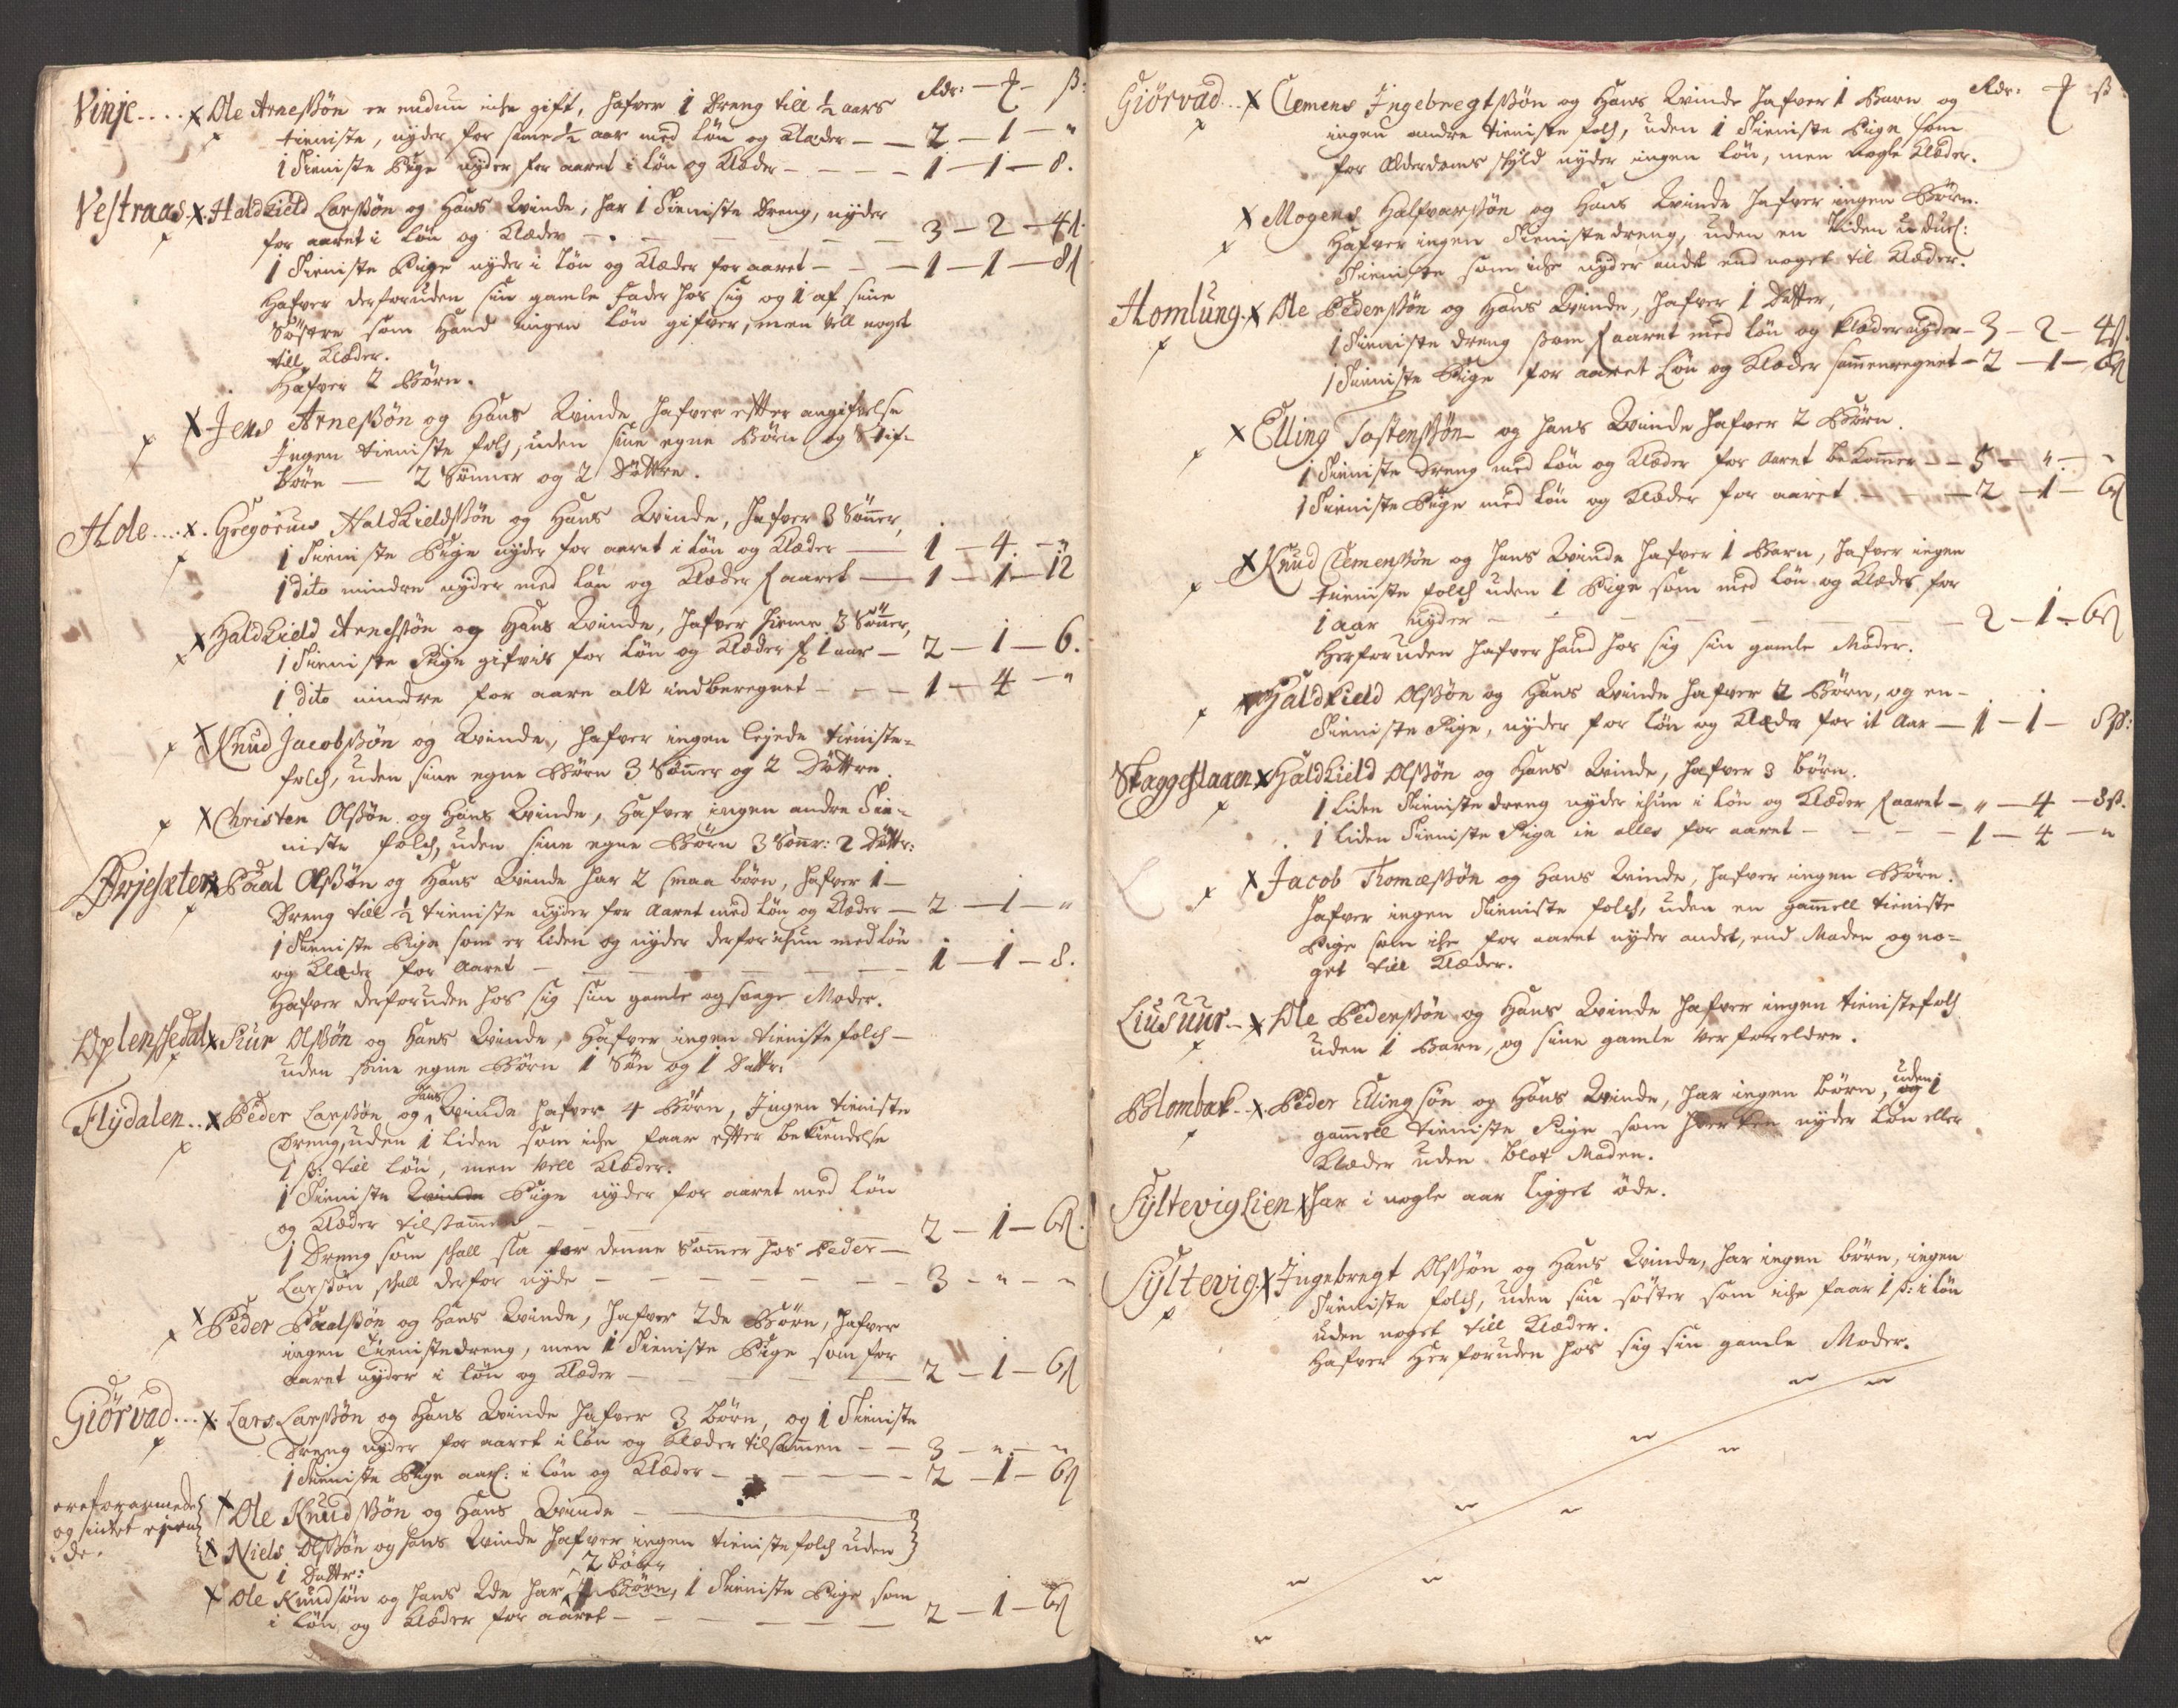 Rdr: — ₰ — ß:
Vinje.... x Ole Arneßøn er endnu iche gift, hafver 1 Dreng till ½ aars
tieniste, nyder for samme ½ aar med løn og Klæder — — 2 — 1 — "
1 Tieniste Pige nyder for aaret i løn og Klæder — — — — 1 — 1 — 8.
Vestraas. x. Haldkield Larßøn og Hans Qvinde, har 1 Tieniste Dreng, nyder
for aaret i løn og Klæder — — — — — — 3 — 2 — 4 ß.
1 Tieniste Pige nyder i løn og Klæder for aaret — — — 1 — 1 — 8 ß
Hafver derforuden sin gamle Fader hos sig og 1 af sine
Søstre som Hand ingen løn gifver, men vell noget
till Klæder.
Hafver 2 Børn.
x Jens Arneßøn og Hans Qvinde hafver efter angifvelse
Ingen tieniste folch, uden sine egne Børn og Stif-
børn — 2 Sønner og 2 Døttre.
Hole.... x. Gregorius Haldkieldßøn og Hans Qvinde, hafver 3 Sønner,
1 Tieniste Pige nyder for aaret i løn og Klæder — 1 — 4 — "
1 dito mindre nyder med løn og Klæder f aaret — 1 — 1 — 12
x Haldkield Arneßøn og Hans Qvinde, hafver hieme 3 Sønner,
1 Tieniste Pige gifvis for løn og Klæder f 1 aar — 2 — 1 — 6.
1 dito mindre for aare alt indberegnet — — — 1 — 4 — "
x Knud Jacobßøn og Qvinde, hafver ingen lejede tieniste-
folch, uden sine egne Børn 3 Sønner og 2 Døttre.
x Christen Olßøn og Hans Qvinde, Hafver ingen andre Tie-
niste folch, uden sine egne Børn 3 Sønr: 2 Døttr:
x Paal Olßøn og Hans Qvinde har 2 smaa børn, hafver 1 —
Dreng till ½ tieniste nyder for aaret med løn og Klæder — 2 — 1 — "
1 Tieniste Pige som er liden og nyder derfor ichun med løn
og Klæder for aaret — — — — — — 1 — 1 — 8.
Hafver derforuden hos sig sin gamle og svage Moder.
x Siur Olßøn og Hans Qvinde, Hafver ingen tieniste folch —
uden sine egne Børn 1 Søn og 1 Dattr:
Flÿdalen.. x Peder Larßøn og Hans Qvinde hafver 4 Børn, Ingen tieniste
Dreng, uden 1 liden som iche faar efter bekiendelse
1 ß: till løn, men vell Klæder.
1 Tieniste Qvinde Pige nyder for aaret med løn
og Klæder tilsammen — — — — — 2 — 1 — 6 ß.
1 Dreng som schall sta for denne Sommer hos Peder —
Larßøn schall derfor nyde — — — — — — 3 — " — "
x Peder Paalßøn og Hans Qvinde, hafver 2de Børn, hafver
ingen Tienistedreng, men 1 Tieniste Pige som for
aaret nyder i løn og Klæder — — — — 2 — 1 — 6 ß
Giørvad... x. Lars Larßøn og Hans Qvinde hafver 3 børn, og 1 Tieniste
Dreng nyder for aaret i løn og Klæder tilsammen — — 3 — " — "
1 Tieniste Pige aarl: i løn og Klæder — — — — — 2 — 1 — 6 ß
ere forarmede x Ole Knudßøn og Hans Qvinde —
og intet ejen- x Niels Olßøn og Hans Qvinde hafver ingen tieniste folch uden
de. 1 Dattr:
2 børn
x Ole Knudsøn og Hans Qde har 1 Børn, 1 Tieniste Pige som
i løn og Klæder for aaret — — — — — 2 — 1 — 6 ß
Rdr: ₰ ß
Giörvad... x Clemens Ingebregtßøn og Hans Qvinde hafver 1 Barn og
ingen andre tieniste folch, uden 1 Tieniste Pige som
for Alderdoms schyld nyder ingen løn, men nogle Klæder.
x Mogens Halfvarßøn og Hans Qvinde hafver ingen Børn.
Hafver ingen Tieniste dreng, uden en liden
Tieniste som iche nyder andet end noget til Klæder.
Homlung. x Ole Pederßøn og Hans Qvinde, hafver 1 Datter,
1 Tieniste Dreng som f aaret med løn og Klæder nyder — 3 — 2 — 4 ß.
1 Tieniste Pige for aaret løn og Klæder sammenregnet — 2 — 1 — 6 ß
x Elling Tostenßøn og Hans Qvinde hafver 2 Børn.
1 Tieniste Dreng med løn og Klæder for Aaret bekommer — — 5 — " — "
1 Tieniste Pige med løn og Klæder for aaret — — — 2 — 1 — 6 ß
x Knud Clemenßøn og Hans Qvinde hafver 1 Barn, hafver ingen
tieniste folch uden 1 Pige som med løn og Klæder for
1 aar nyder — — — — — — 2 — 1 — 6 ß
Herforuden hafver hand hos sig sin gamle Moder.
x Haldkield Olßøn og Hans Qvinde hafver 2 Børn, og en —
Tieniste Pige, nyder for løn og Klæder for it Aar — 1 — 1 — 8 ß:
Skaggeflaaen x Haldkield Olßøn og Hans Qvinde, hafver 3 børn.
1 liden Tieniste dreng nyder ichun i løn og Klæder f aaret — " — 4 — 8 ß.
1 liden Tieniste Pige in alles for aaret — — — — 1 — 4 — "
x Jacob Thomæßøn og Hans Qvinde, hafver ingen Børn.
hafver ingen Tieniste folch, uden en gammell tieniste
Pige som iche for aaret nyder andet, end Maden og no-
get till Klæder.
Liusuur — x Ole Pederßøn og Hans Qvinde hafver ingen tieniste folch
uden 1 Barn, og sine gamle Verforeldre.
Blombak.. x. Peder Ellingsøn og Hans Qvinde, har ingen børn, uden 1
gammell tieniste Pige som hverken nyder løn eller
Klæder uden blot Maden.
Sÿltevig Lien x har i nogle aar ligget øde.
Sÿltevig. x Ingebregt Olßøn og Hans Qvinde, har ingen børn, ingen
Tieniste folch, uden sin søster som iche faar 1 ß: i løn
uden noget till Klæder.
Hafver Herforuden hos sig sin gamle Moder.